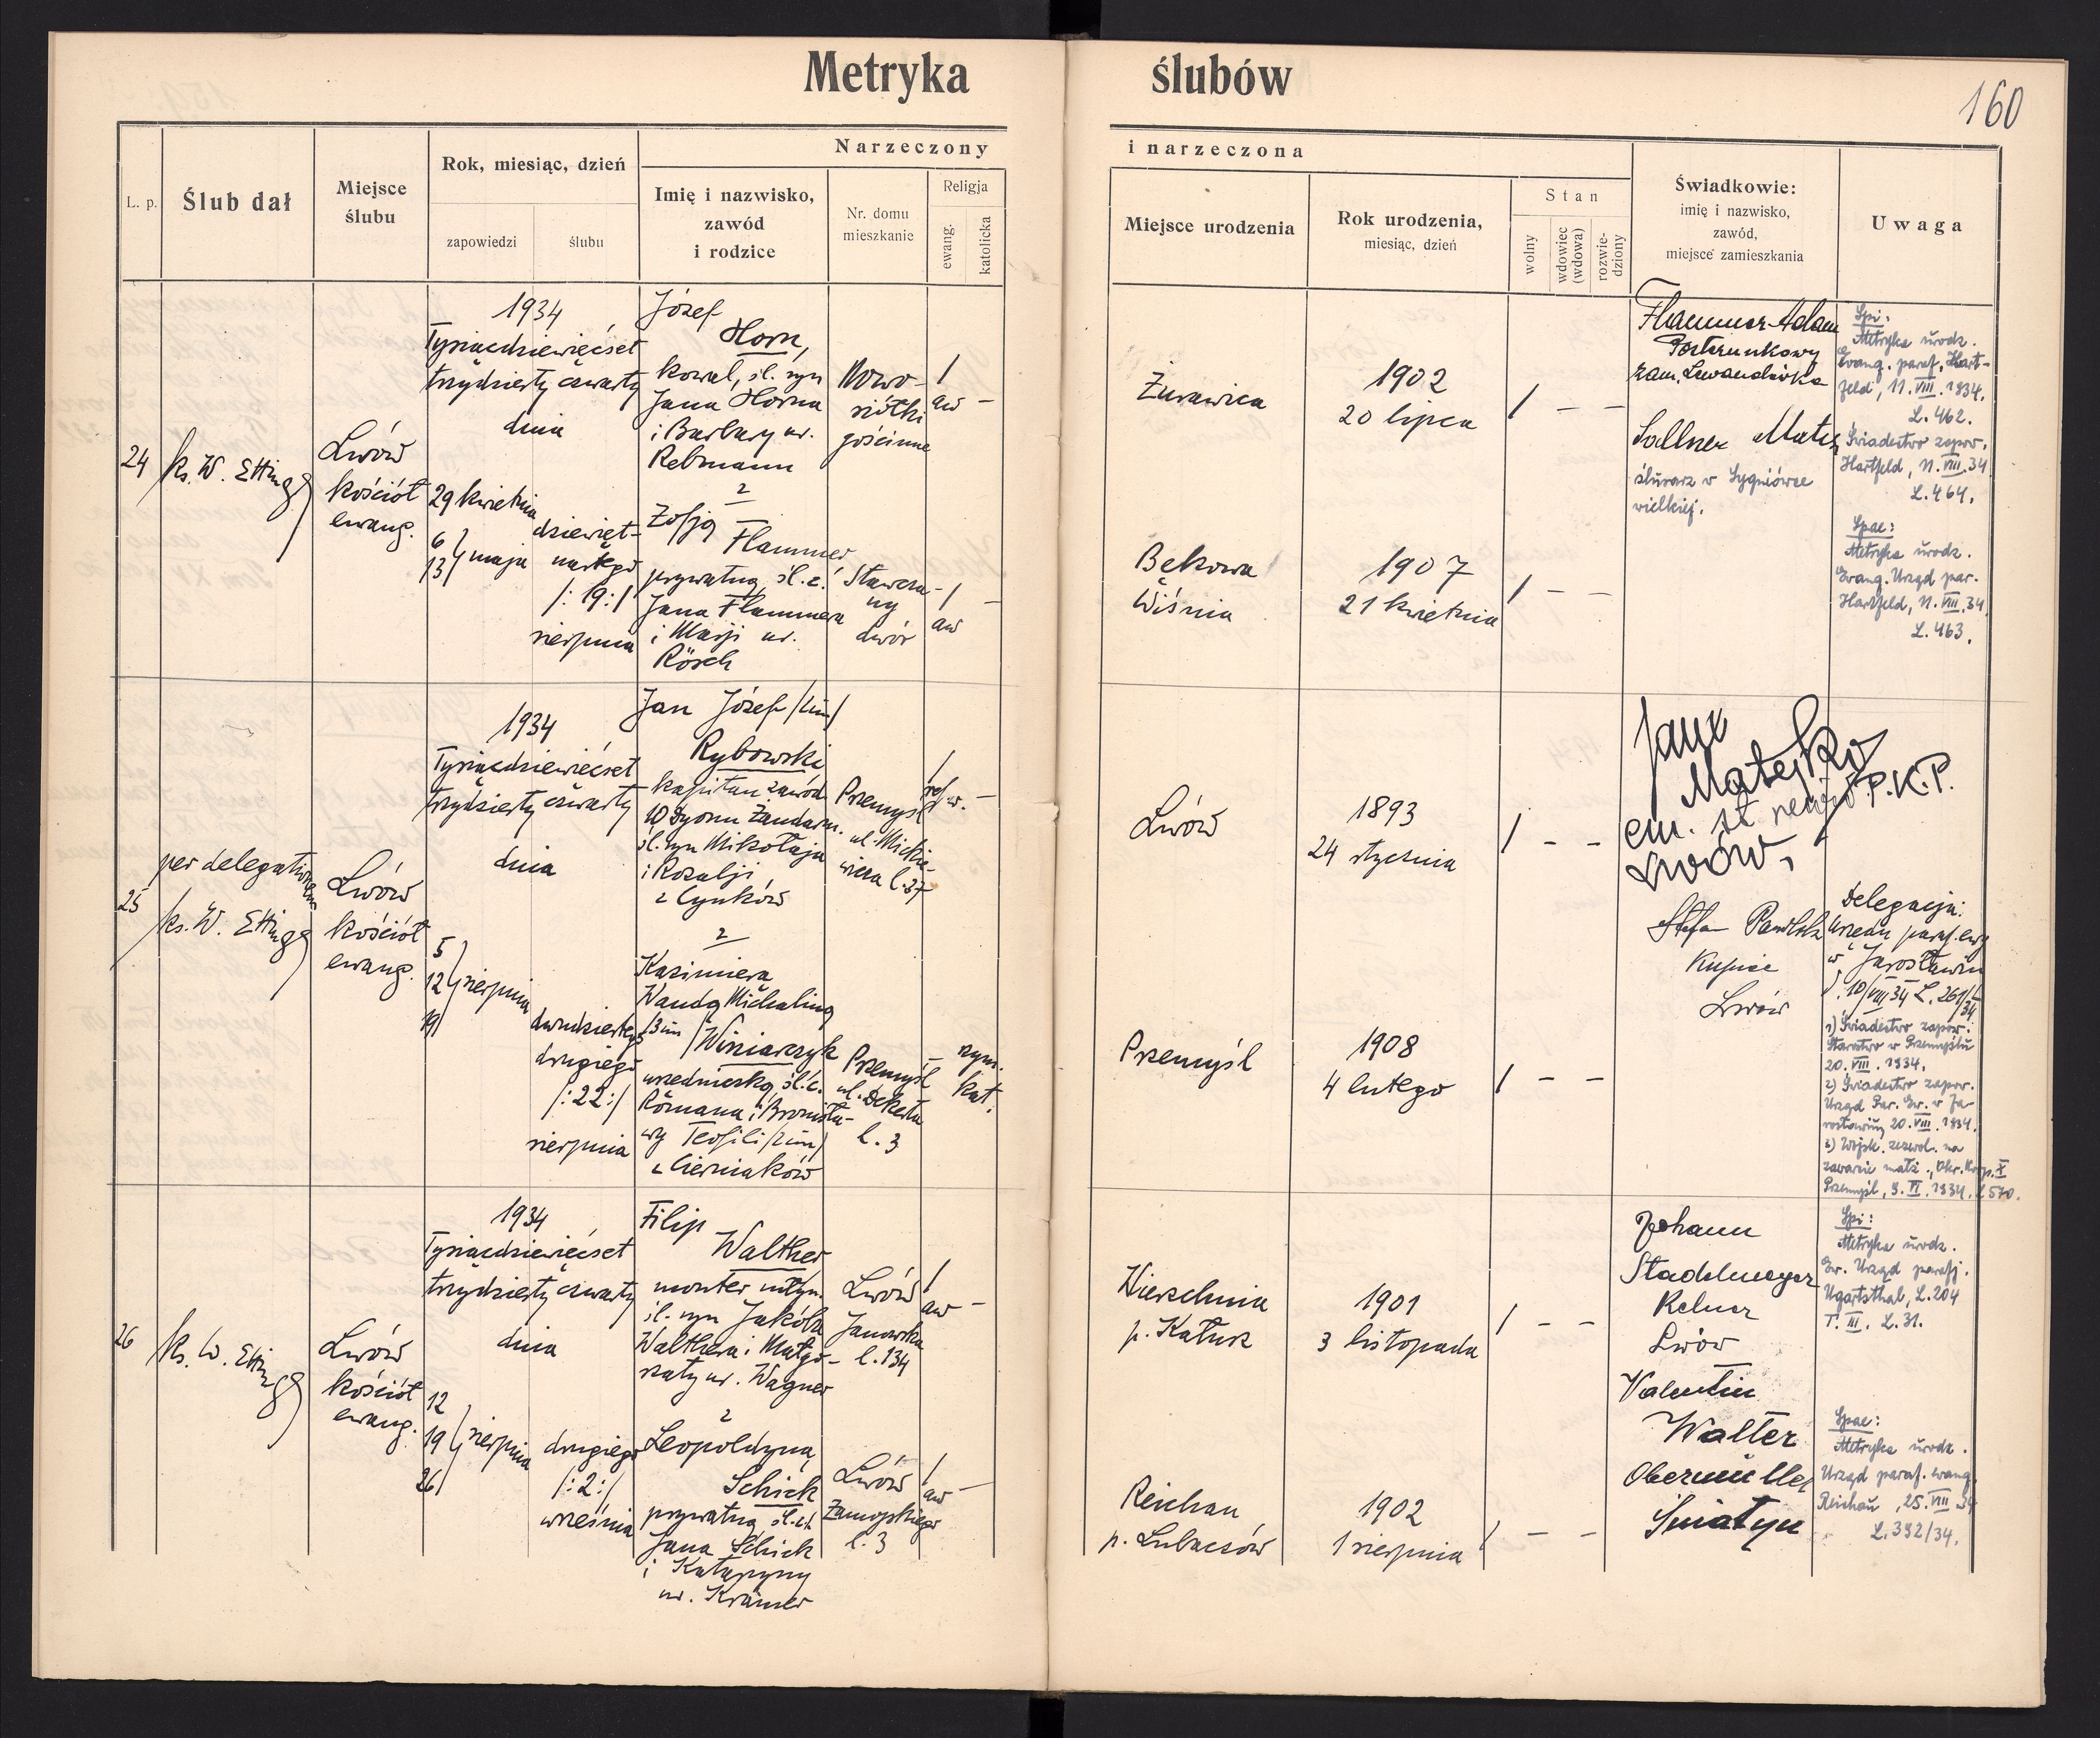 Metryka ślubów
160
L. p.
Ślub dał
Miejsce
ślubu
Rok, miesiąc, dzień
zapowiedzi
ślubu
Narzeczony
Imię i nazwisko,
zawód
i rodzice
Nr. domu
mieszkanie
Religja
ewang.
katolicka
i narzeczona
Miejsce urodzenia
Rok urodzenia,
miesiąc, dzień
Stan
wolny
wdowiec
(wdowa)
rozwie-
dziony
Świadkowie:
imię i nazwisko,
zawód,
miejsce zamieszkania
Uwaga
24
ks. W. Etting
Lwów
kościół
ewang.
1934
Tysiącdziewięćset
trzydziesty czwarty
dnia
29 kwietnia
6
13 maja
dziewięt-
nastego
/: 19 :/
sierpnia
Józef
Horn,
kowal, śl. syn
Jana Horna
i Barbary ur.
Rebmann
z
Zofją
Flammer
prywatną, śl. c.
Jana Flammera
i Marji ur.
Rösch
Nowo-
siółki
gościnne
/
aw
–
Stawcza-
ny
dwór
/
aw
–
Żurawica
1902
20 lipca
/ – –
Bękowa
Wiśnia
1907
21 kwietnia
/ – –
Flammer Adam
Posterunkowy
zam. Lewandówka
Sollner
ślusarz w Sygniówce
wielkiej.
Spi:
Metryka urodz.
Ewang. paraf. Hart-
feld, 11. VIII. 1934.
L. 462.
Świadectwo zapow.
Hartfeld, 11. VIII. 34
L. 464.
Spae:
Metryka urodz.
Ewang. Urząd par.
Hartfeld, 11. VIII. 34.
L. 463.
25
per delegationem
ks. W. Etting
Lwów
kościół
ewang.
1934
Tysiącdziewięćset
trzydziesty czwarty
dnia
5
12 sierpnia
19
dwudziestego
drugiego
/: 22 :/
sierpnia
Jan Józef /2 im/
Rybowski
kapitan zawod.
10 Dyonu Żandarm.
śl. syn Mikołaja
i Rozalji
z Cynków
z
Kazimierą
Wandą Michaliną
/3 im/ Winiarczyk
urzędniczką śl. c.
Romana i Bronisła-
wy Teofili /2 im/
z Cierniaków
Przemyśl
ul. Mickie-
wicza l. 37
/
ref. w.
–
Przemyśl
ul. Dekerta
l. 3
–
rzym.
kat.
Lwów
1893
24 stycznia
/ – –
Przemyśl
1908
4 lutego
/ – –
Jan
Matejko
em. st. P.K.P.
Lwów,
Stefan
Kupiec
Lwów
Delegacja:
Urzędu paraf. ewg
w Jarosławiu
10/VIII 34 L. 261/34
1) Świadectwo zapow.
Starostwo w Przemyślu
20. VIII. 1934.
2) Świadectwo zapow.
Urząd Par. Ew. w Ja-
rosławiu, 20. VIII. 1934.
3) Wojsk. zezwol. na
zawarcie małż., Okr. Korp. X
Przemyśl, 9. VI. 1934. L 570.
26
ks. W. Etting
Lwów
kościół
ewang.
1934
Tysiącdziewięćset
trzydziesty czwarty
dnia
12
19 sierpnia
26
drugiego
/: 2 :/
września
Filip
Walther
monter młyn.
śl. syn Jakóba
Walthera i Małgo-
rzaty ur. Wagner
z
Leopoldyną
Schick
prywatną śl. c.
Jana Schick
i Katarzyny
ur. Krämer
Lwów
Janowska
l. 134
/
aw
–
Lwów
Zamojskiego
l. 3
/
aw
–
Wierzchnia
p. Kałusz
1901
3 listopada
/ – –
Reichau
p. Lubaczów
1902
1 sierpnia
/ – –
Johann
Stadelmeyer
Kelner
Lwów
Valentin
Walter
Obermüller
Śniatyn
Spi:
Metryka urodz.
Ew. Urząd parafj.
Ugartsthal, L. 204
T. III. L. 31.
Spae:
Metryka urodz.
Urząd paraf. ewang.
Reichau, 25. VIII 34
L. 392/34.